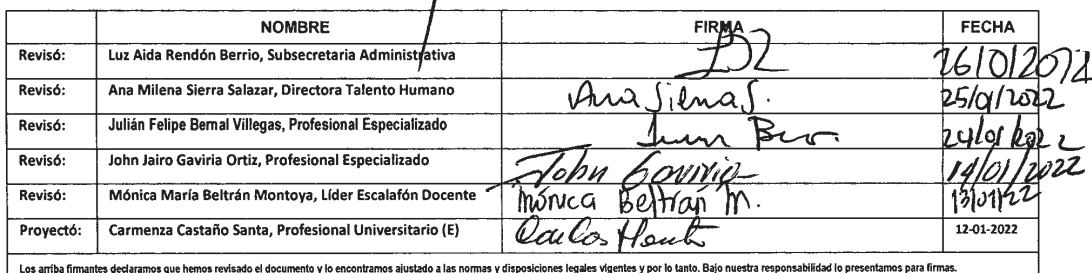 NOMBRE FIRMA FECHA
Revisó: Luz Aida Rendón Berrio, Subsecretaria Administrativa
Revisó: Ana Milena Sierra Salazar, Directora Talento Humano Ana Sierra S. 25/01/2022
Revisó: Julián Felipe Bernal Villegas, Profesional Especializado 24/01/2022
Revisó: John Jairo Gaviria Ortiz, Profesional Especializado John Gaviria 14/01/2022
Revisó: Mónica María Beltrán Montoya, Líder Escalafón Docente Mónica Beltrán M. 13/01/22
Proyectó: Carmenza Castaño Santa, Profesional Universitario (E) 12-01-2022
Los arriba firmantes declaramos que hemos revisado el documento y lo encontramos ajustado a las normas y disposiciones legales vigentes y por lo tanto. Bajo nuestra responsabilidad lo presentamos para firmas.